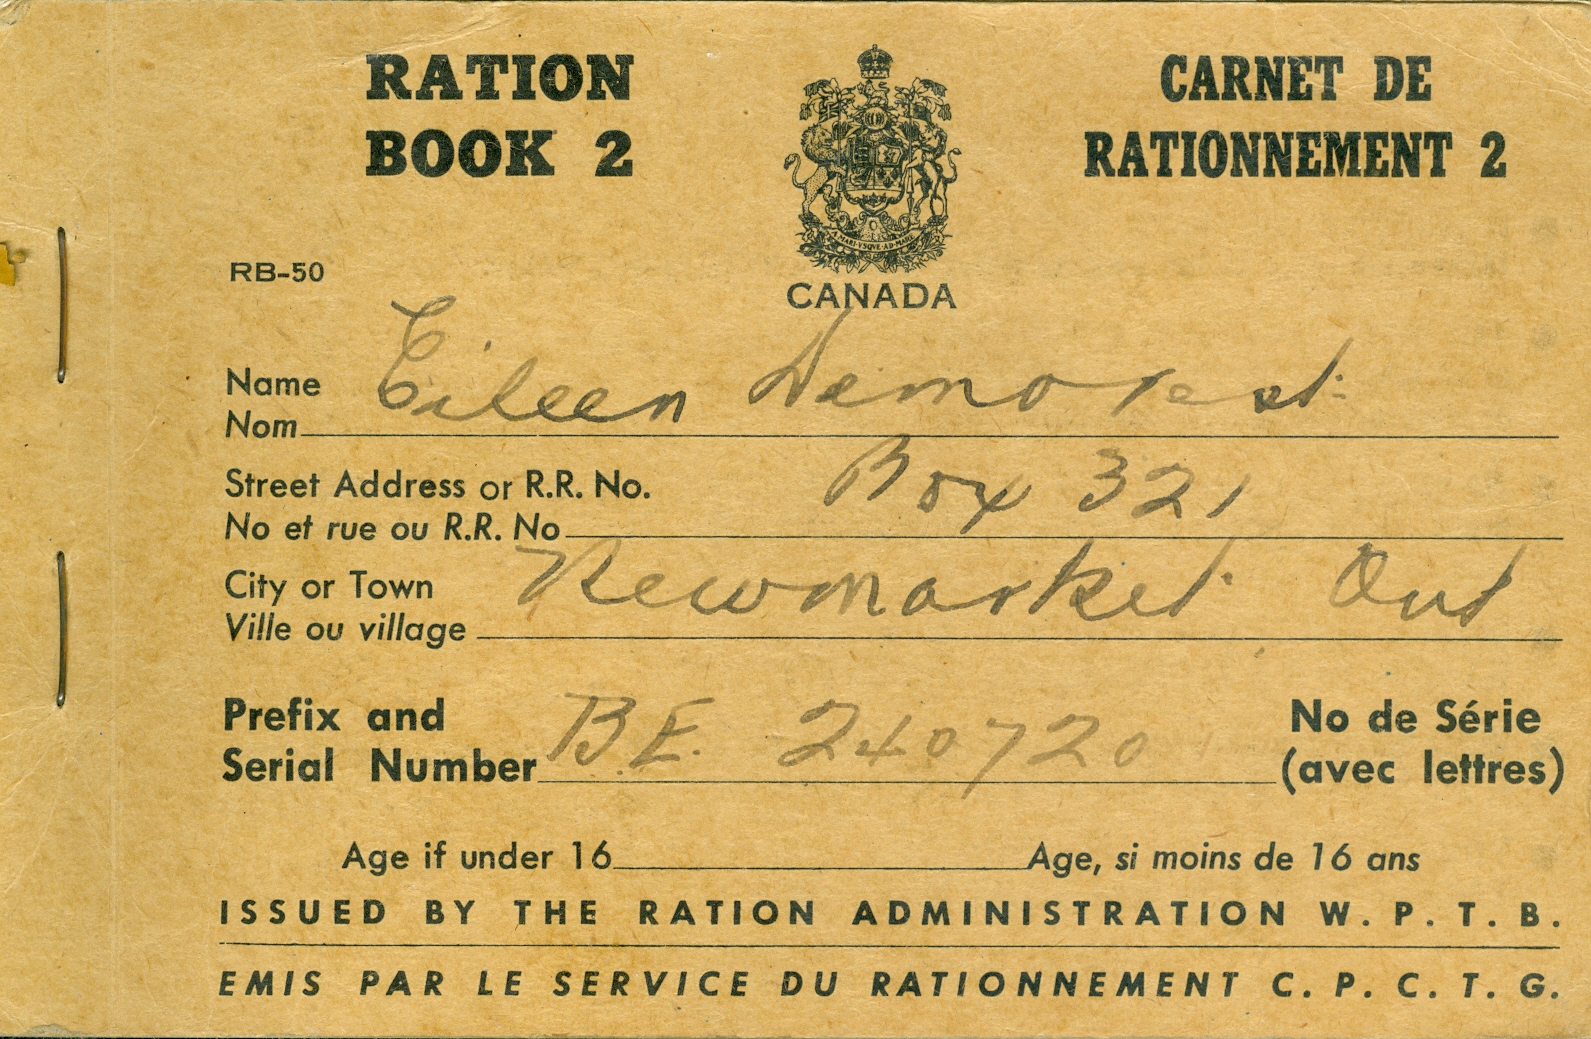 RATION BOOK 2
CARNET DE RATIONNEMENT 2
A·MARI·VSQVE·AD·MARE
RB-50
CANADA
Name Eileen Demorest
Nom
Street Address or R.R. No. Box 321
No et rue ou R.R. No
City or Town Newmarket Ont
Ville ou village
Prefix and Serial Number B.E. 240720 No de Série (avec lettres)
Age if under 16 Age, si moins de 16 ans
ISSUED BY THE RATION ADMINISTRATION W. P. T. B.
EMIS PAR LE SERVICE DU RATIONNEMENT C. P. C. T. G.